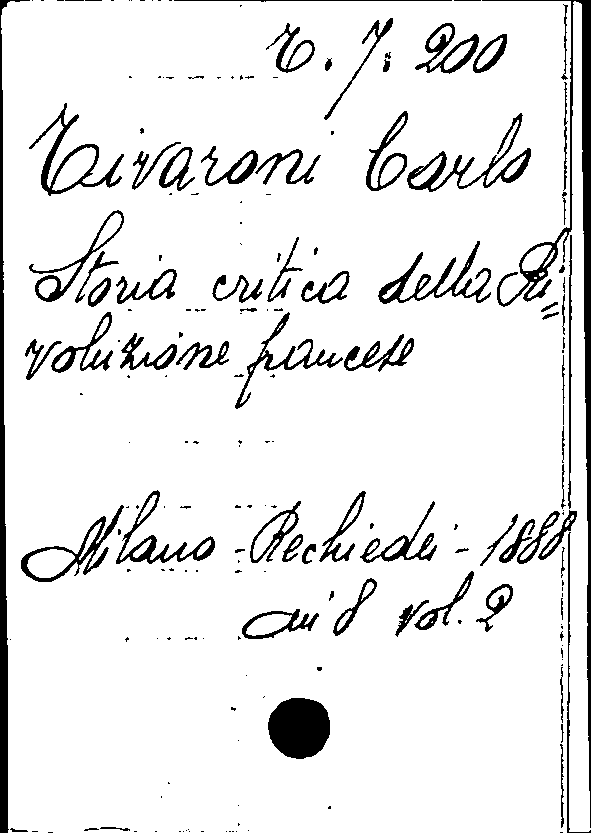 T. 7. 200
Tivaroni Carlo
Storia critica della Ri=
voluzione francese
Milano - Rechiedei - 1888
in 8 vol. 2